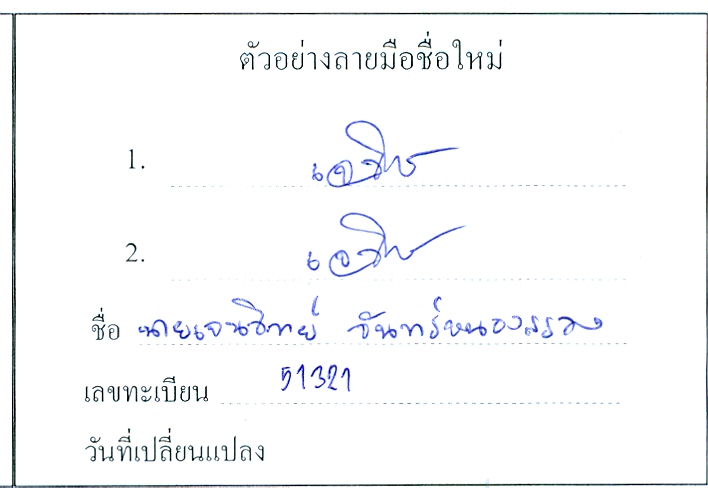 ตัวอย่างลายมือชื่อใหม่
1.
2.
ชื่อ นายเจนวิทย์ จันทร์หนองสรวง
เลขทะเบียน 51321
วันที่เปลี่ยนแปลง